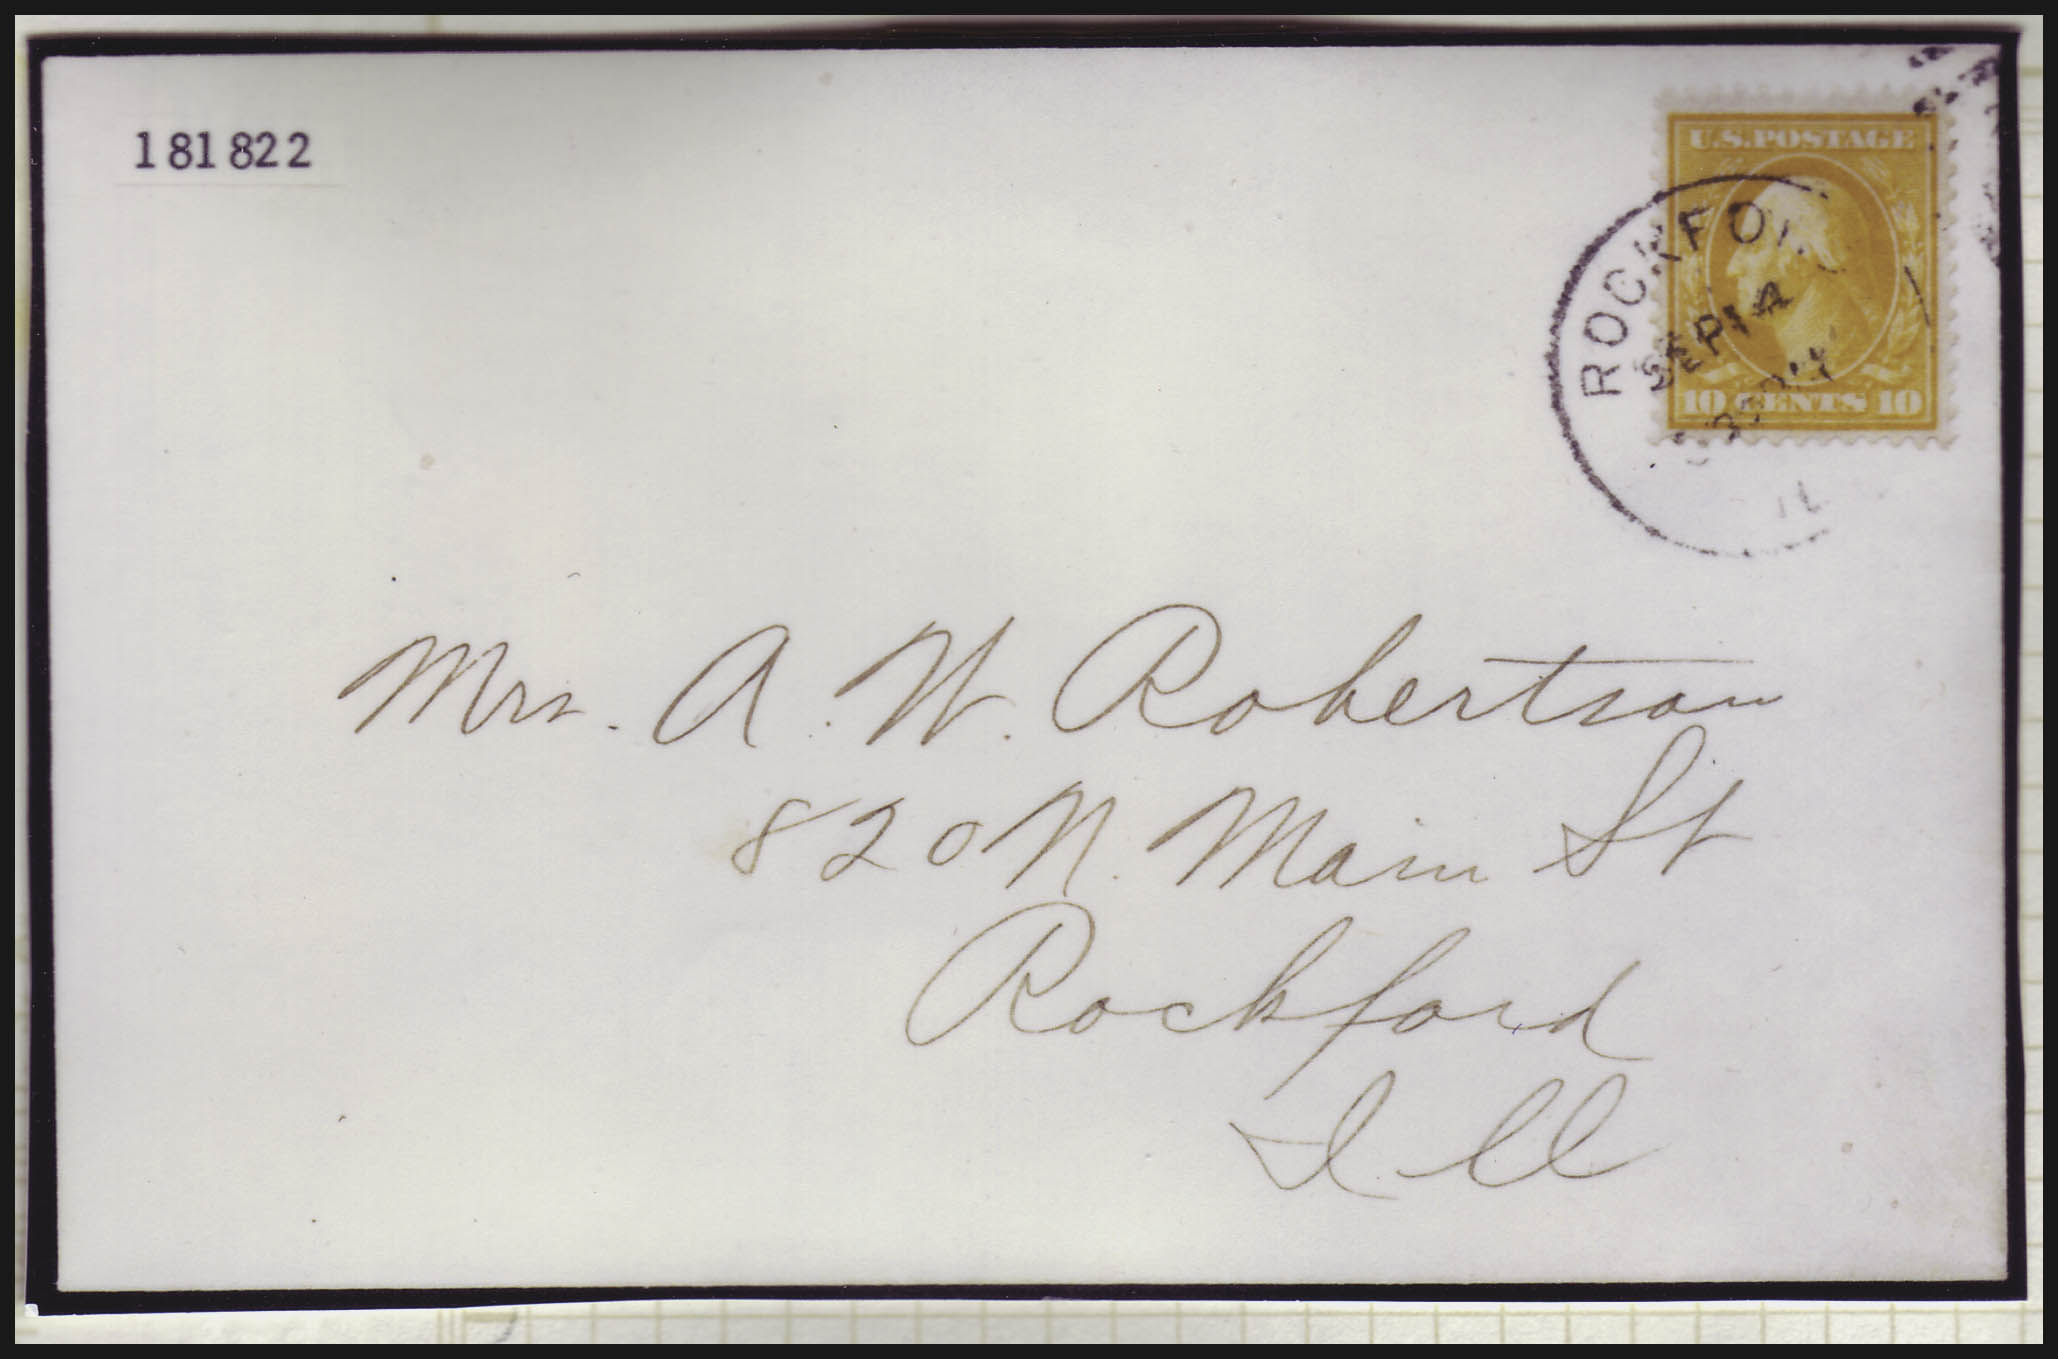 181822
U.S.POSTAGE
ROCKFO
SEP 14
10 CENTS 10
Mrs. A. W. Robertson
820 N. Main St
Rockford
Ill